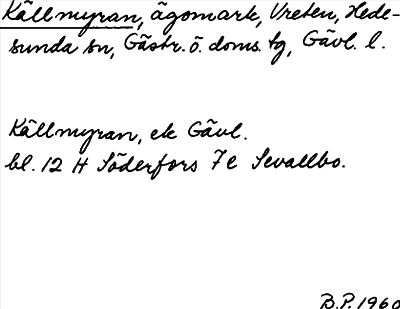 Källmyran, ägomark, Vreten, Hede-
sunda sn, Gästr. ö. doms. tg, Gävl. l.
Källmyran, ek Gävl.
bl. 12 H Söderfors 7e Sevallbo.
B.P. 1960